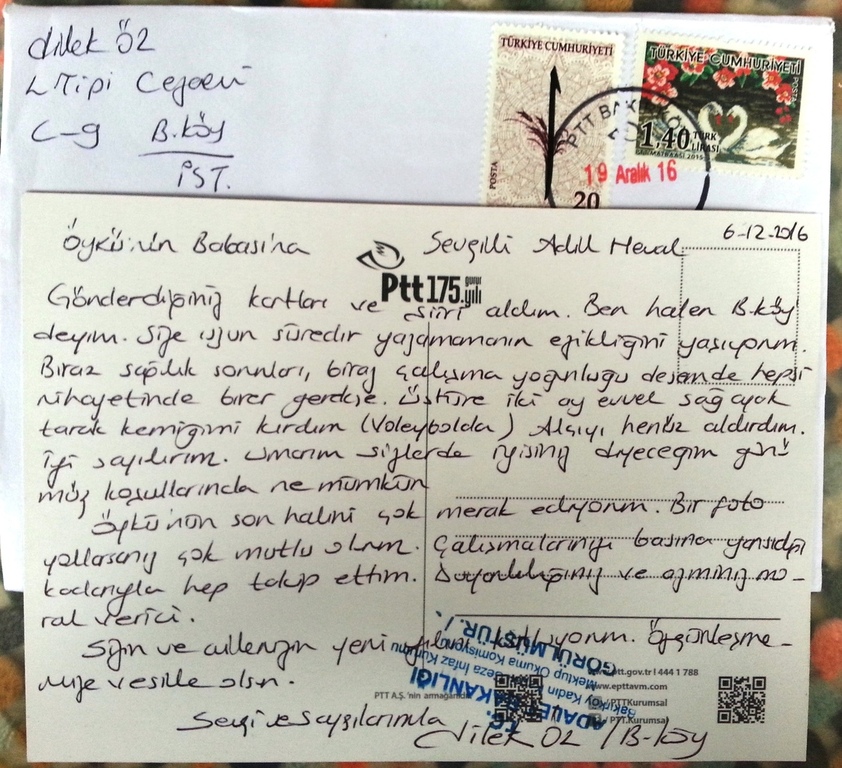 dilek öz
L Tipi Cezaevi
C-9 B.köy
İST.
TÜRKİYE CUMHURİYETİ
POSTA
20
TÜRKİYE CUMHURİYETİ
POSTA
1,40 TÜRK LİRASI
PTT BAKIRKÖY
19 Aralık 16
6-12-2016
Öykü'nün Babasına Sevgili Adil Meral
Ptt 175. gurur yılı
Gönderdiğiniz kartları ve şiiri aldım. Ben halen B.köy
deyim. Size uzun süredir yazamamanın ezikliğini yaşıyorum.
Biraz sağlık sorunları, biraz çalışma yoğunluğu desem de hepsi
nihayetinde birer gerekçe. Üstüne iki ay evvel sağ ayak
tarak kemiğimi kırdım (Voleybolda) Alçıyı henüz aldırdım.
İyi sayılırım. Umarım sizlerde iyisiniz diyeceğim günü
müz koşullarında ne mümkün
Öykü'nün son halini çok merak ediyorum. Bir foto
yollarsanız çok mutlu olurum. Çalışmalarınızı basına yansıdığı
kadarıyla hep takip ettim. Duyarlılığınız ve azminiz mo-
ral verici.
Sizin ve ailenizin yeni yılını kutluyorum. Özgürleşme-
mize vesile olsun.
Sevgi ve saygılarımla
Dilek ÖZ / B-köy
T.C.
ADALET BAKANLIĞI
Bakırköy Kadın Ceza İnfaz Kurumu
Mektup Okuma Komisyonu
GÖRÜLMÜŞTÜR.
PTT A.Ş. 'nin armağanıdır.
www.ptt.gov.tr l 444 1 788
www.epttavm.com
/PTTKurumsal
/PTTKurumsal